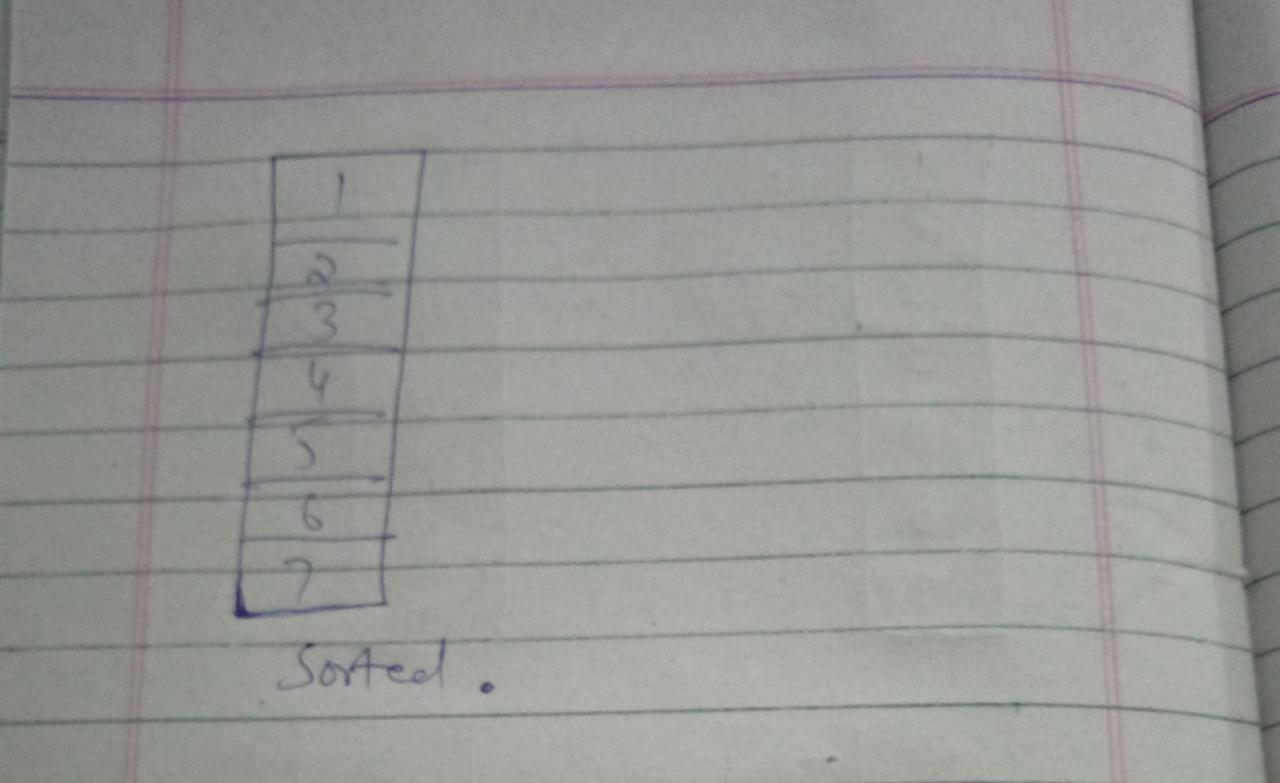 1
2
3
4
5
6
7
Sorted.